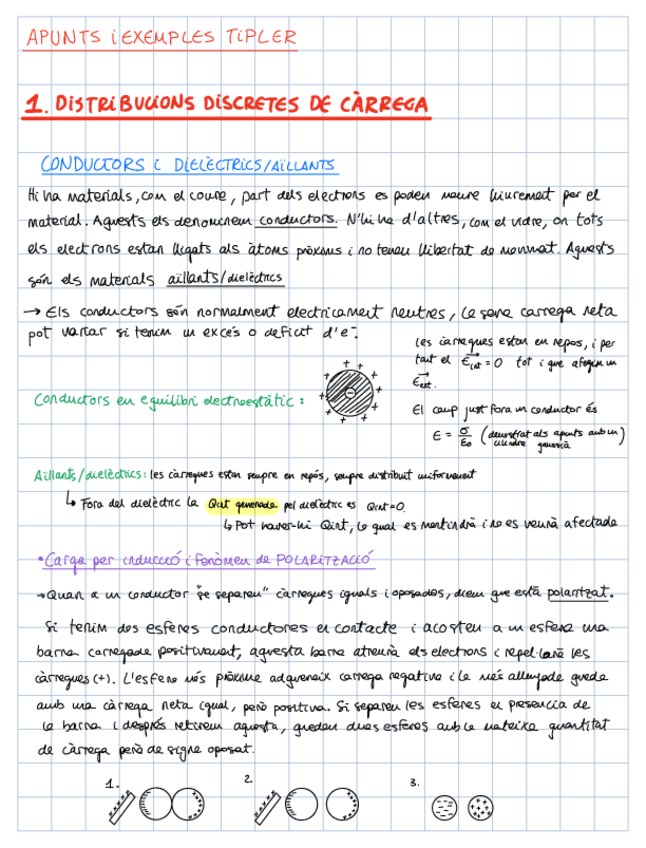 APUNTS i EXEMPLES TiPLER
1. DiSTRiBUCiONS DiSCRETES DE CÀRREGA
CONDUCTORS i DiELÈCTRiCS/AïLLANTS
Hi ha materials, com el coure, part dels electrons es poden moure lliurement per el
material. Aquests els denominem conductors. N'hi ha d'altres, com el vidre, on tots
els electrons estan lligats als àtoms pròxims i no tenen llibertat de moviment. Aquests
són els materials aïllants/dielèctrics
→ Els conductors són normalment electricament neutres, la seva carrega neta
pot variar si tenim un excés o deficit d'e⁻.
Conductors en equilibri electroestàtic:
les càrregues estan en repos, i per
tant el E = 0 tot i que afegim un
E ext.
El camp just fora un conductor és
E = σ/ε₀ (demostrat als apunts amb un
cilindre gaussià)
Aïllants/dielèctrics: les càrregues estan sempre en repós, sempre distribuït uniformement
↳ Fora del dielèctric la Qint generada pel dielèctric es Qint=0.
↳ Pot haver-hi Qint, la qual es mantindrà i no es veurà afectada
• Carga per inducció i fenòmen de POLARiTZACiÓ
→ Quan a un conductor "se separen" càrregues iguals i oposades, diem que està polaritzat.
Si tenim dos esferes conductores en contacte i acosteu a un esfera una
barra carregada positivament, aquesta barra atreurà els electrons i repel·lirà les
càrregues (+). L'esfera més pròxima adquireix carrega negativa i la més allunyada queda
amb una càrrega neta igual, però positiva. Si separeu les esferes en presencia de
la barra i després retirem aquesta, queden dues esferes amb la mateixa quantitat
de càrrega però de signe oposat.
1. 2. 3.